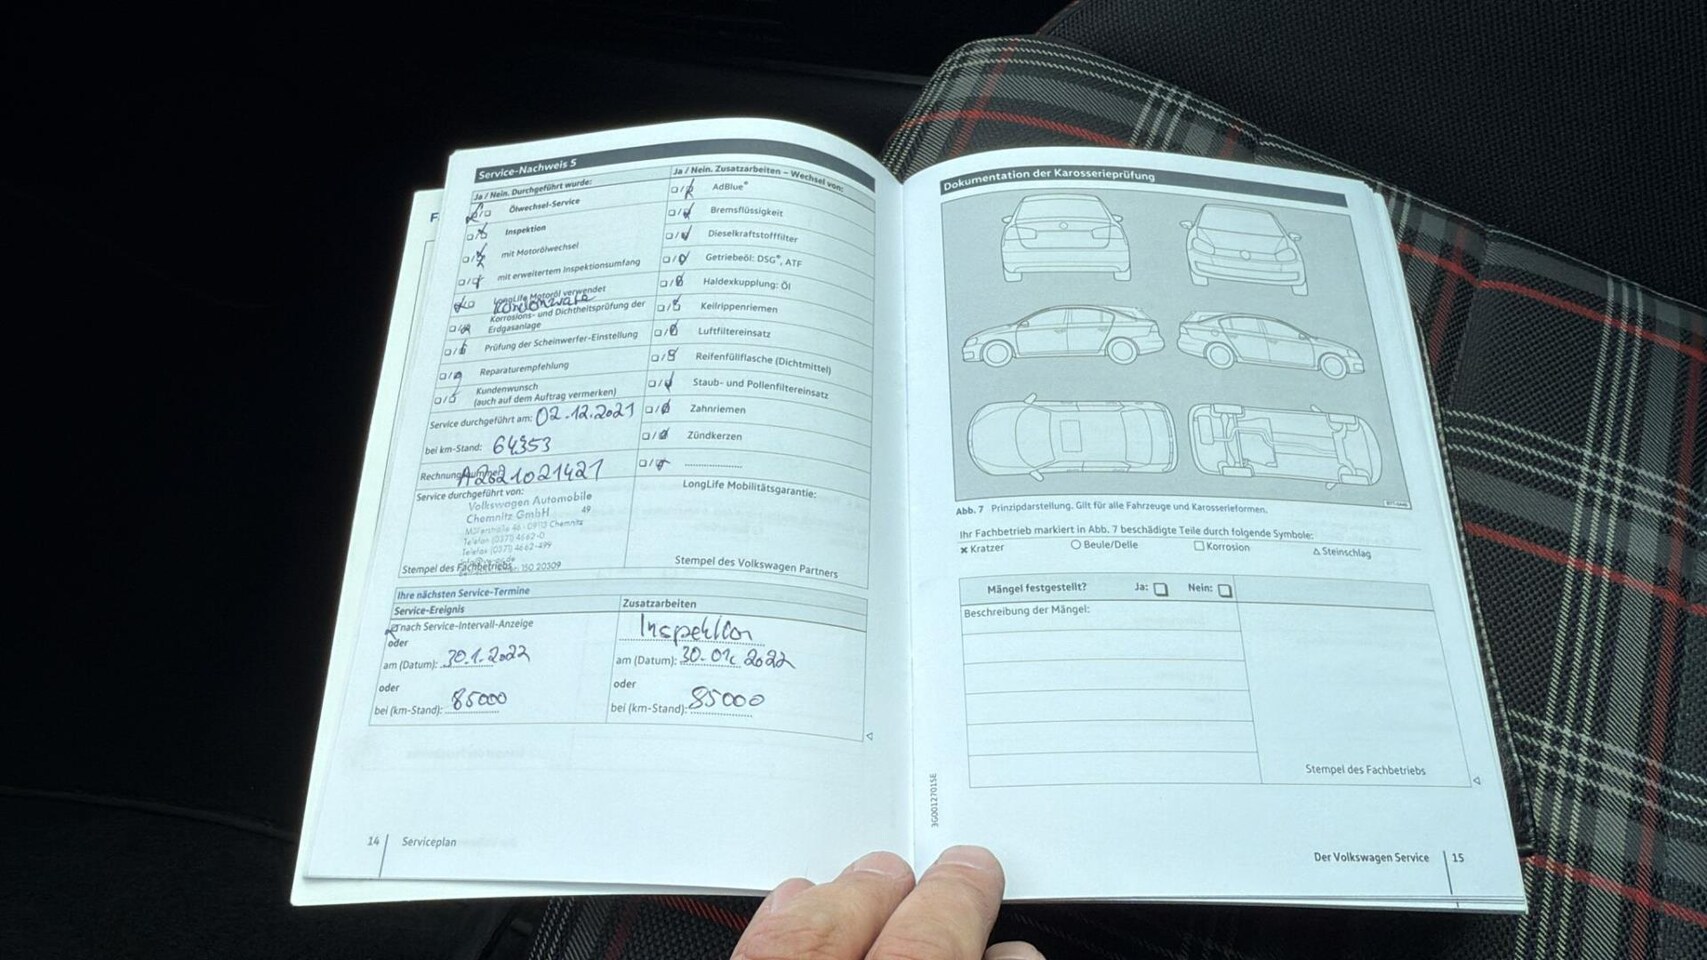 F
Service-Nachweis 5
Ja / Nein. Durchgeführt wurde:
Ölwechsel-Service
Inspektion
mit Motorölwechsel
mit erweitertem Inspektionsumfang
LongLife Motoröl verwendet
Korrosions- und Dichtheitsprüfung der
Erdgasanlage
Prüfung der Scheinwerfer-Einstellung
Reparaturempfehlung
Kundenwunsch
(auch auf dem Auftrag vermerken)
Service durchgeführt am: 02.12.2021
bei km-Stand: 64353
Service durchgeführt von:
Volkswagen Automobile
Chemnitz GmbH 49
Chemnitz
Telefon (0371) 4662-0
Telefax (0371) 4662-499
Stempel des Fachbetriebs
Ja / Nein. Zusatzarbeiten – Wechsel von:
AdBlue®
Bremsflüssigkeit
Dieselkraftstofffilter
Getriebeöl: DSG®, ATF
Haldexkupplung: Öl
Keilrippenriemen
Luftfiltereinsatz
Reifenfüllflasche (Dichtmittel)
Staub- und Pollenfiltereinsatz
Zahnriemen
Zündkerzen
LongLife Mobilitätsgarantie:
Stempel des Volkswagen Partners
Ihre nächsten Service-Termine
Service-Ereignis
nach Service-Intervall-Anzeige
oder
am (Datum): 30.1.2022
oder
bei (km-Stand): 85000
Zusatzarbeiten
Inspektion
am (Datum): 30.01. 2022
oder
bei (km-Stand): 85000
14 Serviceplan
Dokumentation der Karosserieprüfung
Abb. 7 Prinzipdarstellung. Gilt für alle Fahrzeuge und Karosserieformen.
Ihr Fachbetrieb markiert in Abb. 7 beschädigte Teile durch folgende Symbole:
× Kratzer ○ Beule/Delle □ Korrosion △ Steinschlag
Mängel festgestellt? Ja: Nein:
Beschreibung der Mängel:
Stempel des Fachbetriebs
3G0012701SE
Der Volkswagen Service 15